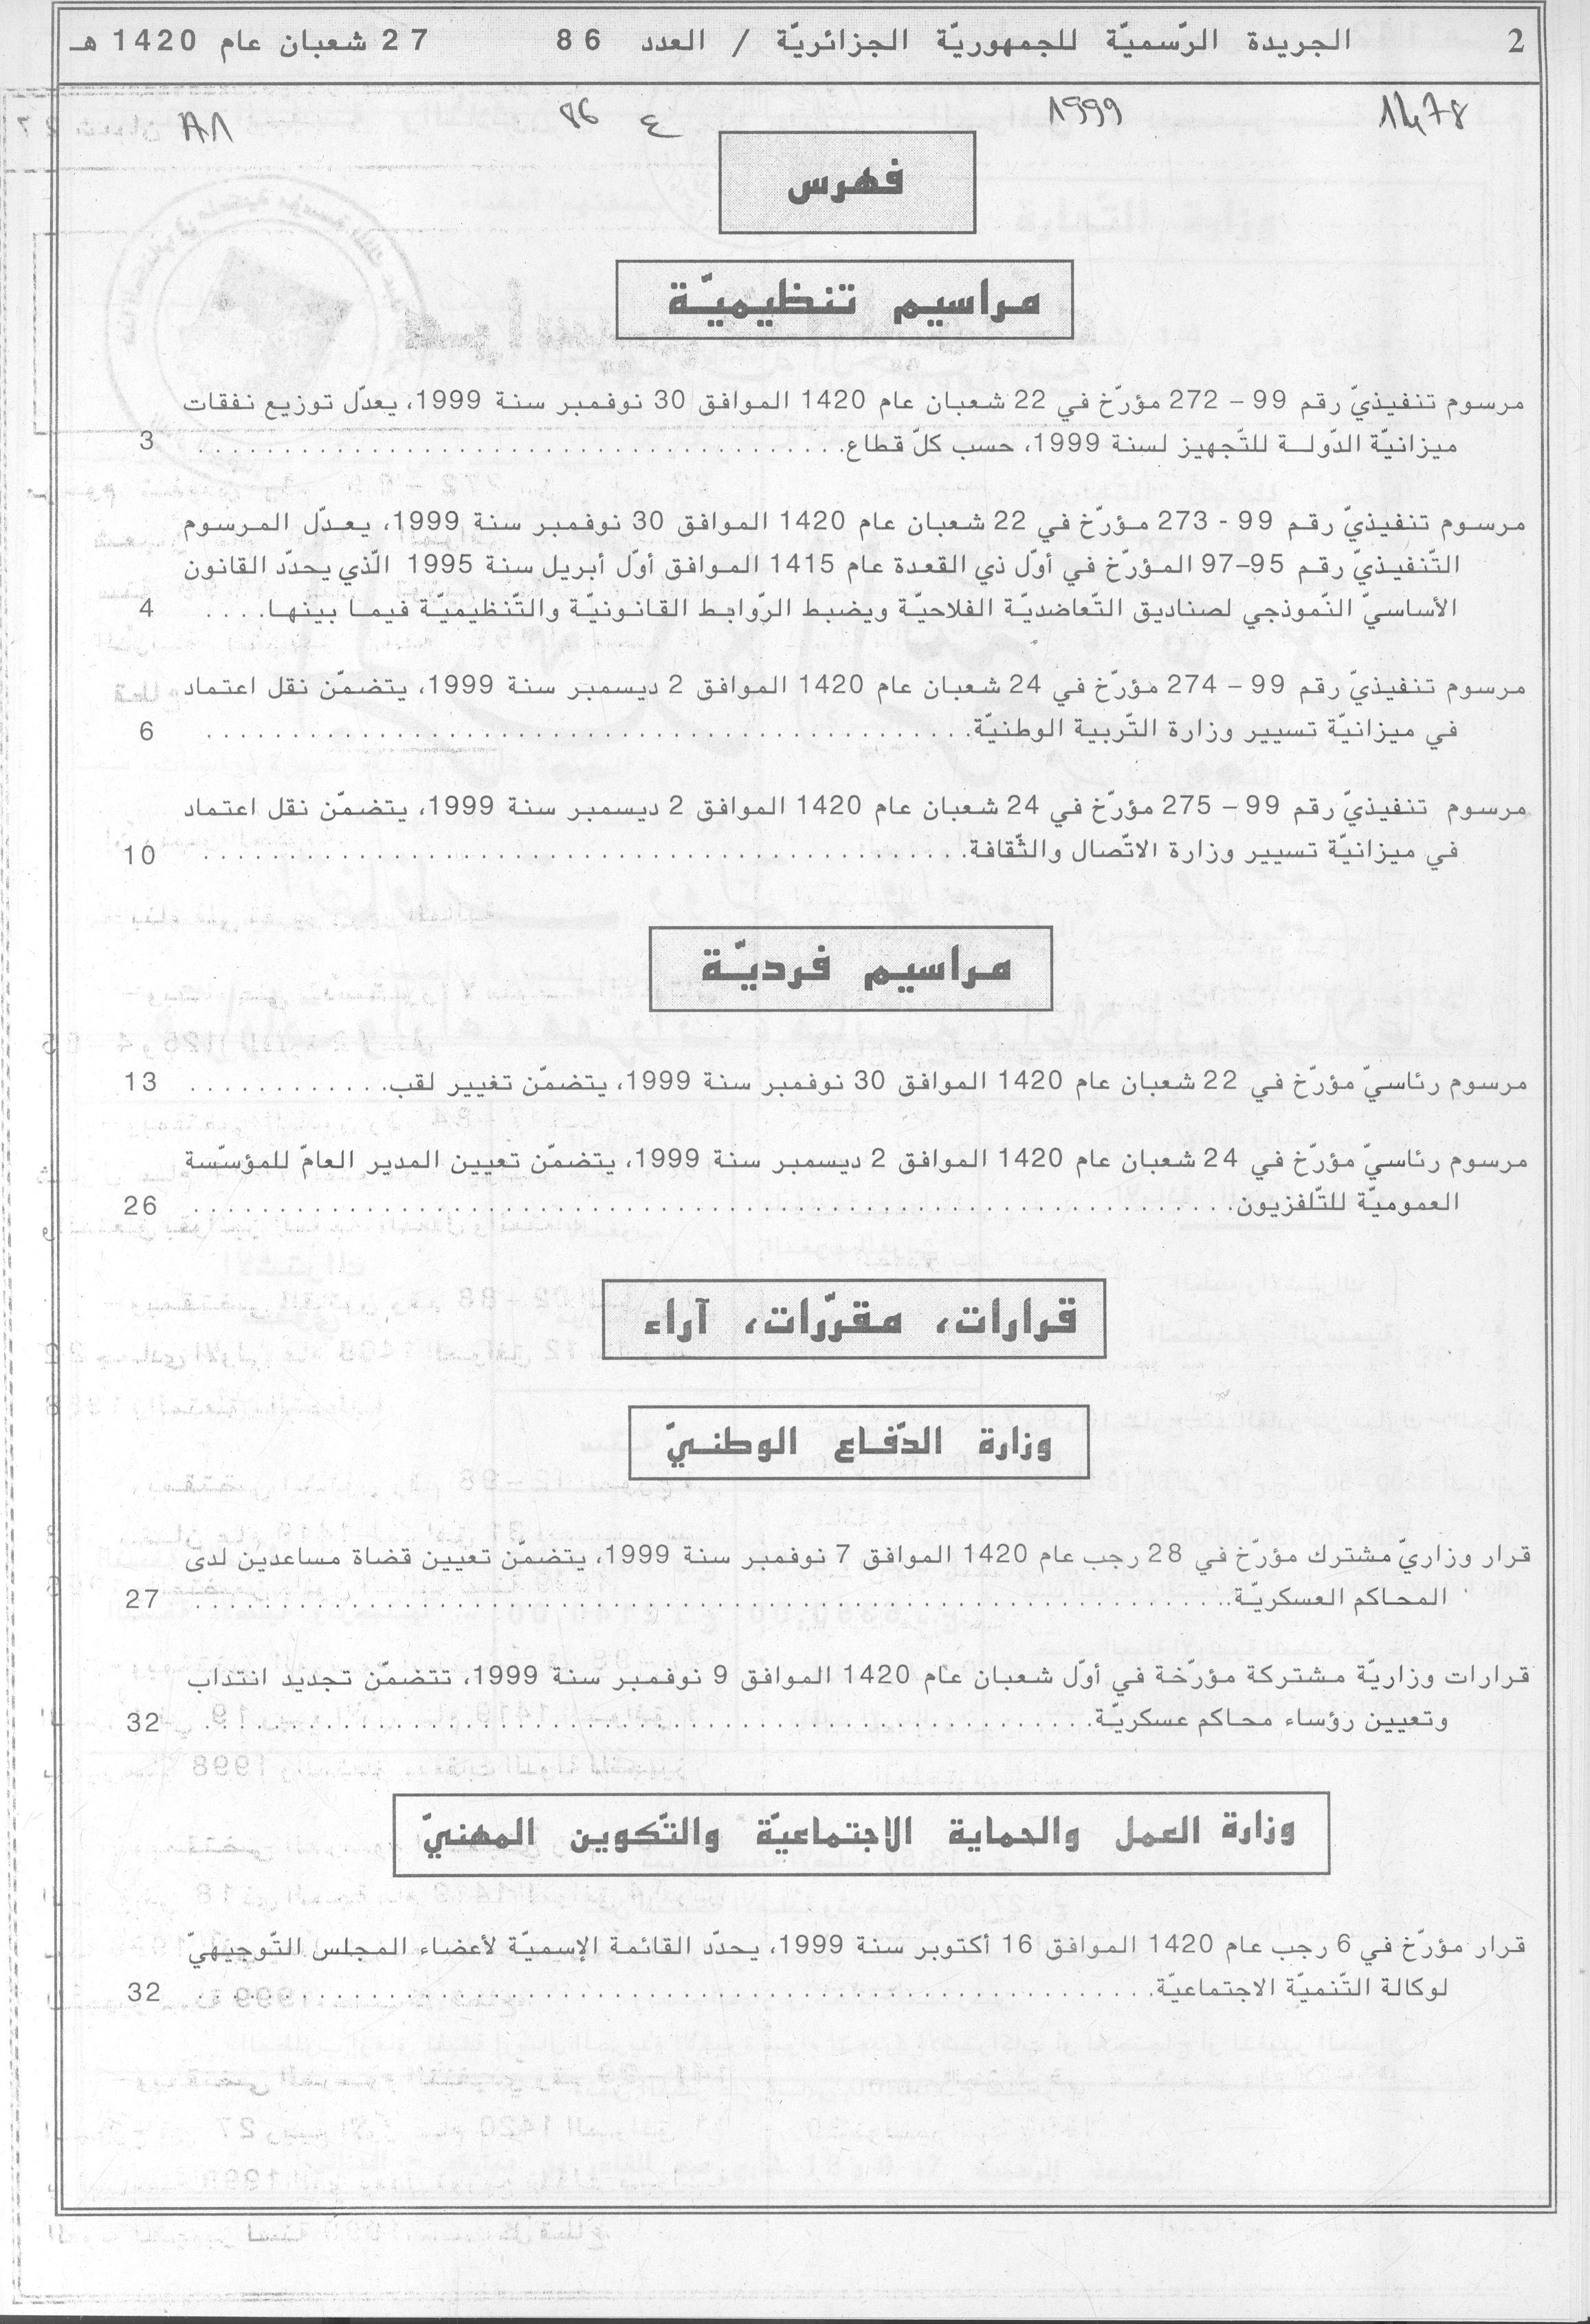 2 الجريدة الرّسميّة للجمهوريّة الجزائريّة / العدد 86 27 شعبان عام 1420 هـ
1478 1999 ع 86
فهرس
مراسيم تنظيميّة
مرسوم تنفيذيّ رقم 99 – 272 مؤرّخ في 22 شعبان عام 1420 الموافق 30 نوفمبر سنة 1999، يعدّل توزيع نفقات
ميزانيّة الدّولـة للتّجهيز لسنة 1999، حسب كلّ قطاع........ 3
مرسوم تنفيذيّ رقم 99 - 273 مؤرّخ في 22 شعبان عام 1420 الموافق 30 نوفمبر سنة 1999، يعدّل المرسوم
التّنفيذيّ رقم 95–97 المؤرّخ في أوّل ذي القعدة عام 1415 الموافق أوّل أبريل سنة 1995 الّذي يحدّد القانون
الأساسيّ النّموذجي لصناديق التّعاضديّة الفلاحيّة ويضبط الرّوابط القانونيّة والتّنظيميّة فيما بينها.... 4
مرسوم تنفيذيّ رقم 99 – 274 مؤرّخ في 24 شعبان عام 1420 الموافق 2 ديسمبر سنة 1999، يتضمّن نقل اعتماد
في ميزانيّة تسيير وزارة التّربية الوطنيّة........ 6
مرسوم تنفيذيّ رقم 99 – 275 مؤرّخ في 24 شعبان عام 1420 الموافق 2 ديسمبر سنة 1999، يتضمّن نقل اعتماد
في ميزانيّة تسيير وزارة الاتّصال والثّقافة........ 10
مراسيم فرديّة
مرسوم رئاسيّ مؤرّخ في 22 شعبان عام 1420 الموافق 30 نوفمبر سنة 1999، يتضمّن تغيير لقب........ 13
مرسوم رئاسيّ مؤرّخ في 24 شعبان عام 1420 الموافق 2 ديسمبر سنة 1999، يتضمّن تعيين المدير العامّ للمؤسّسة
العموميّة للتّلفزيون........ 26
قرارات، مقرّرات، آراء
وزارة الدّفـاع الوطنـيّ
قرار وزاريّ مشترك مؤرّخ في 28 رجب عام 1420 الموافق 7 نوفمبر سنة 1999، يتضمّن تعيين قضاة مساعدين لدى
المحاكم العسكريّة........ 27
قرارات وزاريّة مشتركة مؤرّخة في أوّل شعبان عام 1420 الموافق 9 نوفمبر سنة 1999، تتضمّن تجديد انتداب
وتعيين رؤساء محاكم عسكريّة........ 32
وزارة العمل والحماية الاجتماعيّة والتّكوين المهنيّ
قرار مؤرّخ في 6 رجب عام 1420 الموافق 16 أكتوبر سنة 1999، يحدّد القائمة الإسميّة لأعضاء المجلس التّوجيهيّ
لوكالة التّنميّة الاجتماعيّة........ 32